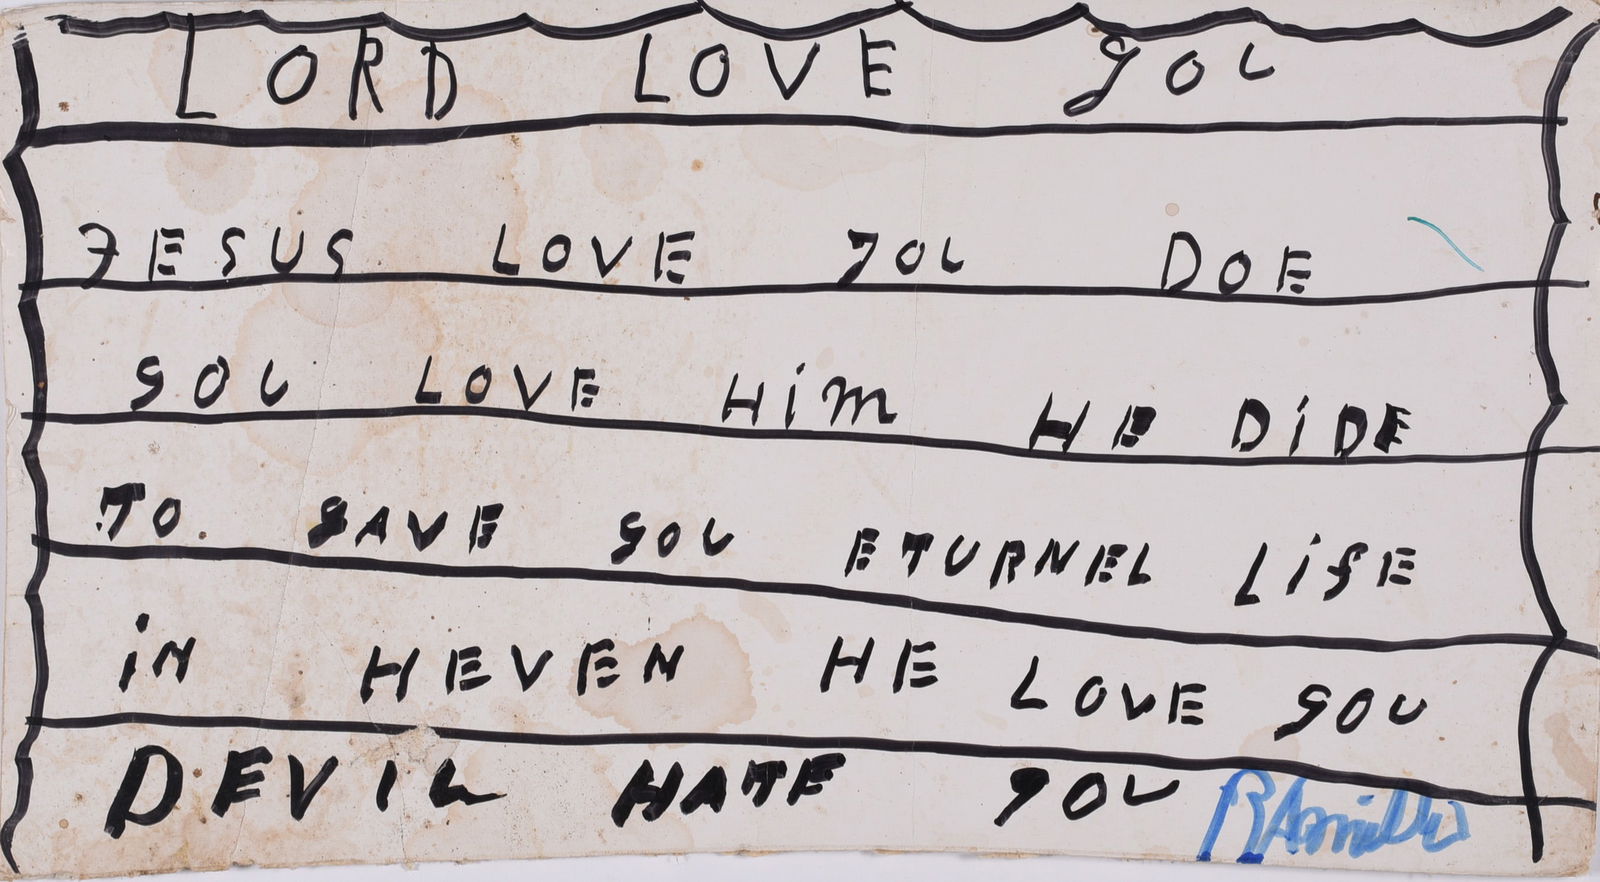 LORD LOVE YOU
JESUS LOVE YOU DOE
YOU LOVE HiM HE DiDE
TO SAVE YOU ETURNEL LifE
iN HEVEN HE LOVE YOU
DEVIL HATE YOU